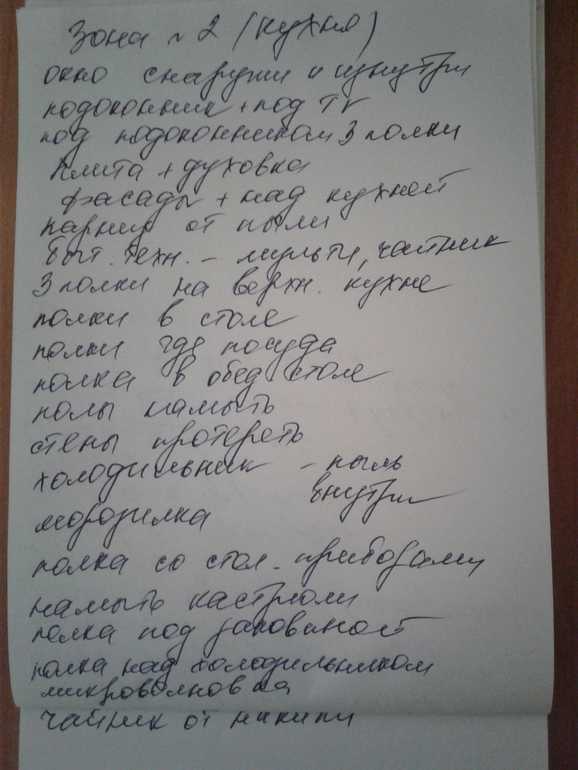 Зона № 2 (кухня)
окно снаружи и изнутри
подоконник + под TV
под подоконником 3 полки
плита + духовка
фасады + над кухней
карниз от пыли
быт. техн. – мульти, чайник
3 полки на верхн. кухне
полки в столе
полки где посуда
полка в обед. столе
полы намыть
стены протереть
холодильник – пыль
внутри
морозилка
полка со стол. приборами
намыть кастрюли
полка под раковиной
полка над холодильником
микроволновка
чайник от накипи